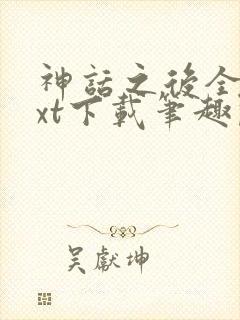 神話之後全
xt下載筆趣
吳獻坤